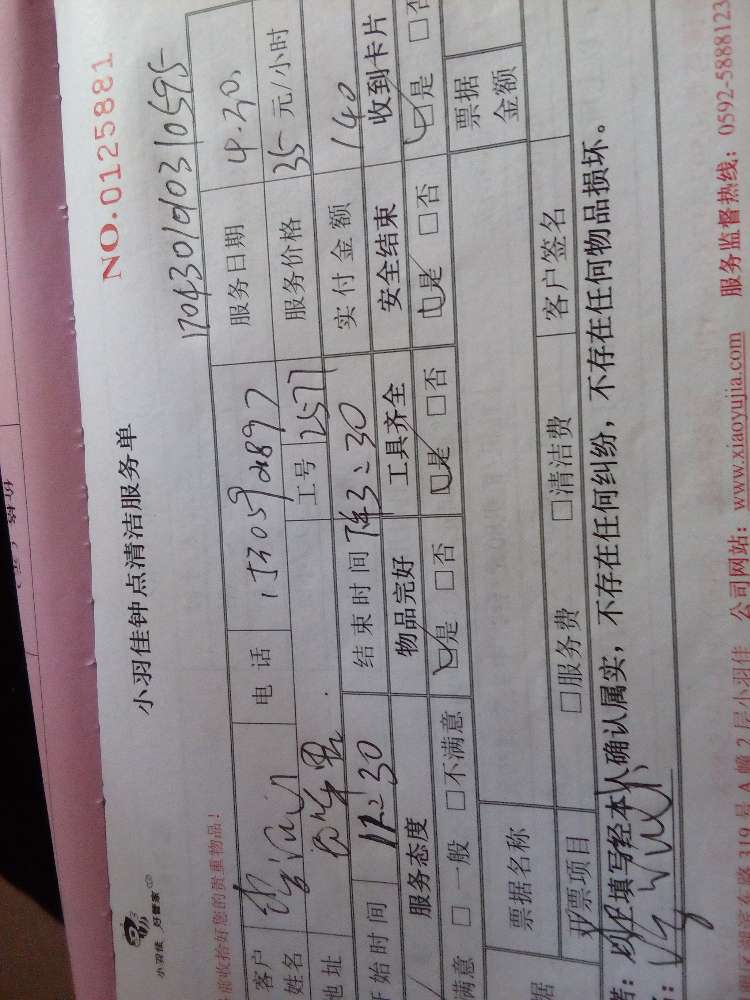 NO.0125881
小羽佳 好管家
小羽佳钟点清洁服务单
170430100310595
收拾好您的贵重物品！
客户姓名 电话 服务日期 4.30
地址 工号 2577 服务价格 35 元/小时
开始时间 12:30 结束时间 下午3:30 实付金额 140
服务态度 物品完好 工具齐全 安全结束 收到卡片
满意 □一般 □不满意 □是 □否 □是 □否 □是 □否 □是 □否
票据名称 票据金额
开票项目 □服务费 □清洁费 客户签名
以上填写经本人确认属实，不存在任何纠纷，不存在任何物品损坏。
路 319 号 A 幢 2 层小羽佳 公司网站：www.xiaoyujia.com 服务监督热线：0592-5888123